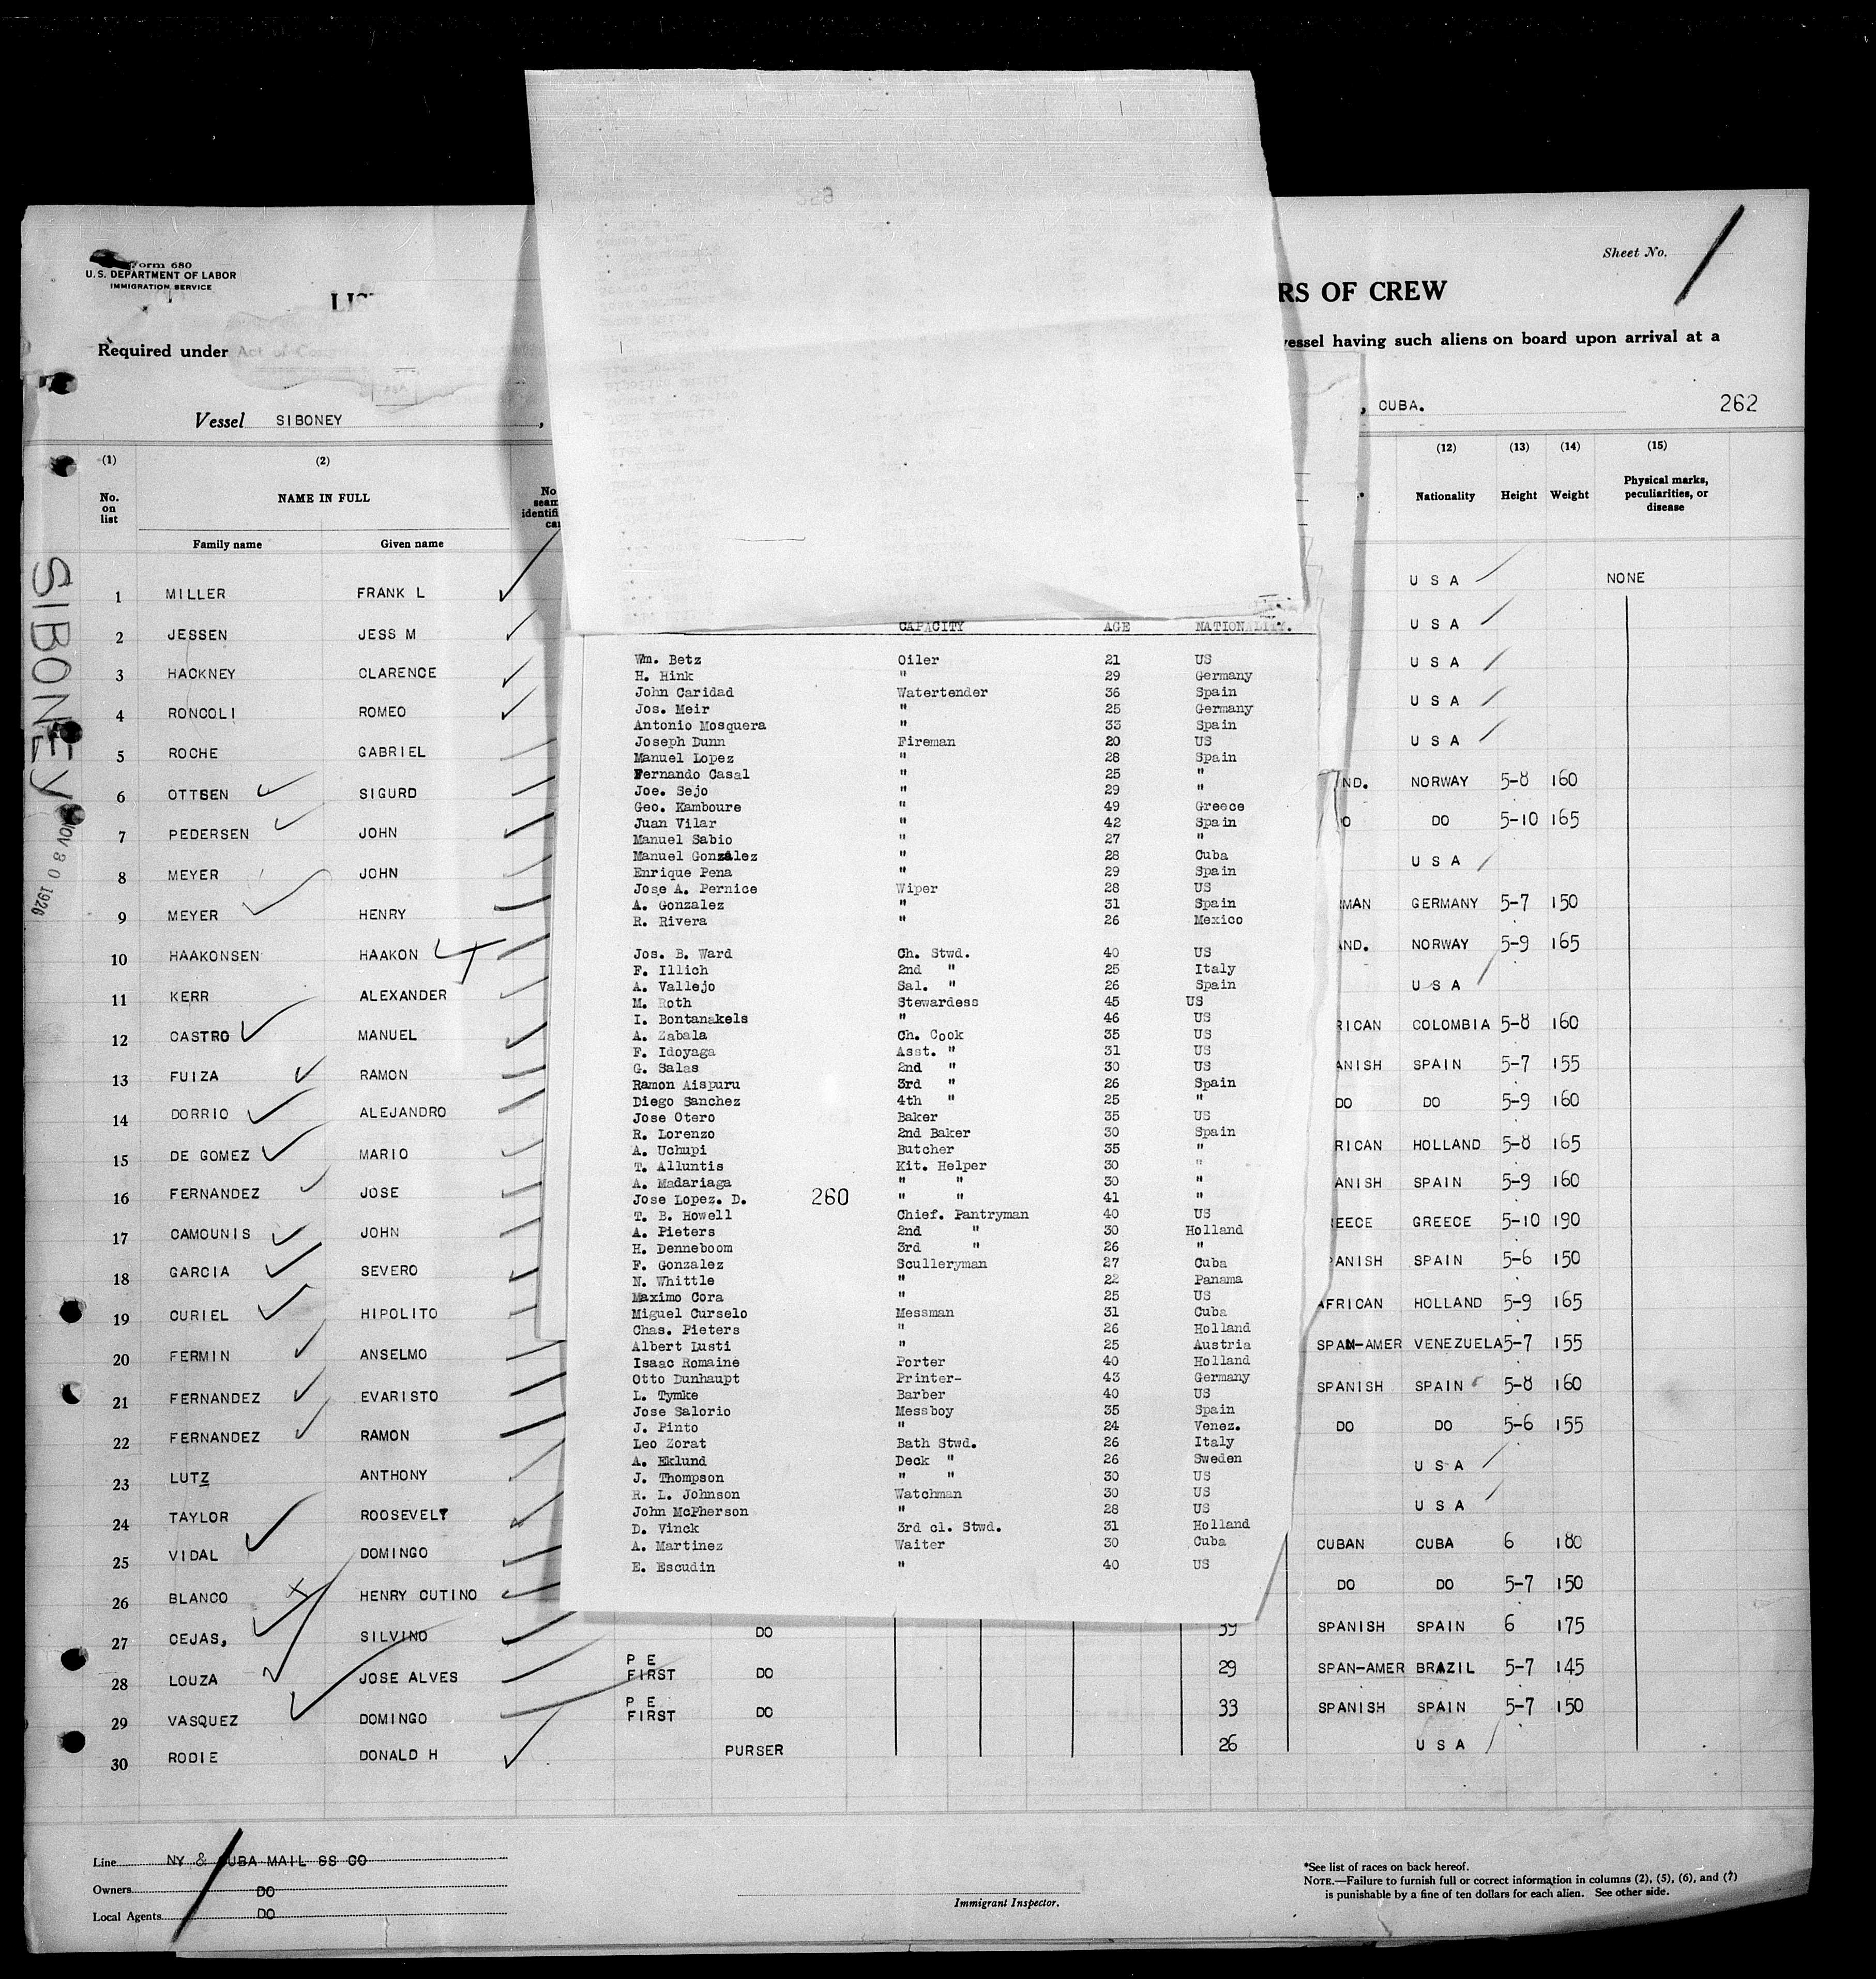 Form 680
U.S. DEPARTMENT OF LABOR
IMMIGRATION SERVICE
Sheet No.
LIS
RS OF CREW
Required under Act of Cong
vessel having such aliens on board upon arrival at a
Vessel SIBONEY ,
, CUBA.
262
SIBONEY
NOV 30 1926
(1) (2) (12) (13) (14) (15)
No. on list
NAME IN FULL
Family name Given name
No
seam
identifi
car
Nationality Height Weight
Physical marks, peculiarities, or disease
1 MILLER FRANK L U S A NONE
2 JESSEN JESS M U S A
3 HACKNEY CLARENCE U S A
4 RONCOLI ROMEO U S A
5 ROCHE GABRIEL U S A
6 OTTSEN SIGURD ND. NORWAY 5-8 160
7 PEDERSEN JOHN O DO 5-10 165
8 MEYER JOHN U S A
9 MEYER HENRY MAN GERMANY 5-7 150
10 HAAKONSEN HAAKON AND. NORWAY 5-9 165
11 KERR ALEXANDER U S A
12 CASTRO MANUEL RICAN COLOMBIA 5-8 160
13 FUIZA RAMON ANISH SPAIN 5-7 155
14 DORRIO ALEJANDRO DO DO 5-9 160
15 DE GOMEZ MARIO RICAN HOLLAND 5-8 165
16 FERNANDEZ JOSE ANISH SPAIN 5-9 160
17 CAMOUNIS JOHN EECE GREECE 5-10 190
18 GARCIA SEVERO PANISH SPAIN 5-6 150
19 CURIEL HIPOLITO AFRICAN HOLLAND 5-9 165
20 FERMIN ANSELMO SPAN-AMER VENEZUELA 5-7 155
21 FERNANDEZ EVARISTO SPANISH SPAIN 5-8 160
22 FERNANDEZ RAMON DO DO 5-6 155
23 LUTZ ANTHONY U S A
24 TAYLOR ROOSEVELT U S A
25 VIDAL DOMINGO CUBAN CUBA 6 180
26 BLANCO HENRY CUTINO DO DO 5-7 150
27 CEJAS, SILVINO DO 39 SPANISH SPAIN 6 175
28 LOUZA JOSE ALVES P E FIRST DO 29 SPAN-AMER BRAZIL 5-7 145
29 VASQUEZ DOMINGO P E FIRST DO 33 SPANISH SPAIN 5-7 150
30 RODIE DONALD H PURSER 26 U S A
CAPACITY AGE NATIONALITY.
Wm. Betz Oiler 21 US
H. Hink " 29 Germany
John Caridad Watertender 36 Spain
Jos. Meir " 25 Germany
Antonio Mosquera " 33 Spain
Joseph Dunn Fireman 20 US
Manuel Lopez " 28 Spain
Fernando Casal " 25 "
Joe. Sejo " 29 "
Geo. Kamboure " 49 Greece
Juan Vilar " 42 Spain
Manuel Sabio " 27 "
Manuel Gonzalez " 28 Cuba
Enrique Pena " 29 Spain
Jose A. Pernice Wiper 28 US
A. Gonzalez " 31 Spain
R. Rivera " 26 Mexico
Jos. B. Ward Ch. Stwd. 40 US
F. Illich 2nd " 25 Italy
A. Vallejo Sal. " 26 Spain
M. Roth Stewardess 45 US
I. Bontanakels " 46 US
A. Zabala Ch. Cook 35 US
F. Idoyaga Asst. " 31 US
G. Salas 2nd " 30 US
Ramon Aispuru 3rd " 26 Spain
Diego Sanchez 4th " 25 "
Jose Otero Baker 35 US
R. Lorenzo 2nd Baker 30 Spain
A. Uchupi Butcher 35 "
T. Alluntis Kit. Helper 30 "
A. Madariaga " " 30 "
Jose Lopez. D. 260 " " 41 "
T. B. Howell Chief. Pantryman 40 US
A. Pieters 2nd " 30 Holland
H. Denneboom 3rd " 26 "
F. Gonzalez Sculleryman 27 Cuba
N. Whittle " 22 Panama
Maximo Cora " 25 US
Miguel Curselo Messman 31 Cuba
Chas. Pieters " 26 Holland
Albert Lusti " 25 Austria
Isaac Romaine Porter 40 Holland
Otto Dunhaupt Printer- 43 Germany
L. Tymke Barber 40 US
Jose Salorio Messboy 35 Spain
J. Pinto " 24 Venez.
Leo Zorat Bath Stwd. 26 Italy
A. Eklund Deck " 26 Sweden
J. Thompson " " 30 US
R. L. Johnson Watchman 30 US
John McPherson " 28 US
D. Vinck 3rd cl. Stwd. 31 Holland
A. Martinez Waiter 30 Cuba
E. Escudin " 40 US
Line NY & CUBA MAIL SS CO
Owners DO
Local Agents DO
Immigrant Inspector.
*See list of races on back hereof.
NOTE.—Failure to furnish full or correct information in columns (2), (5), (6), and (7)
is punishable by a fine of ten dollars for each alien. See other side.